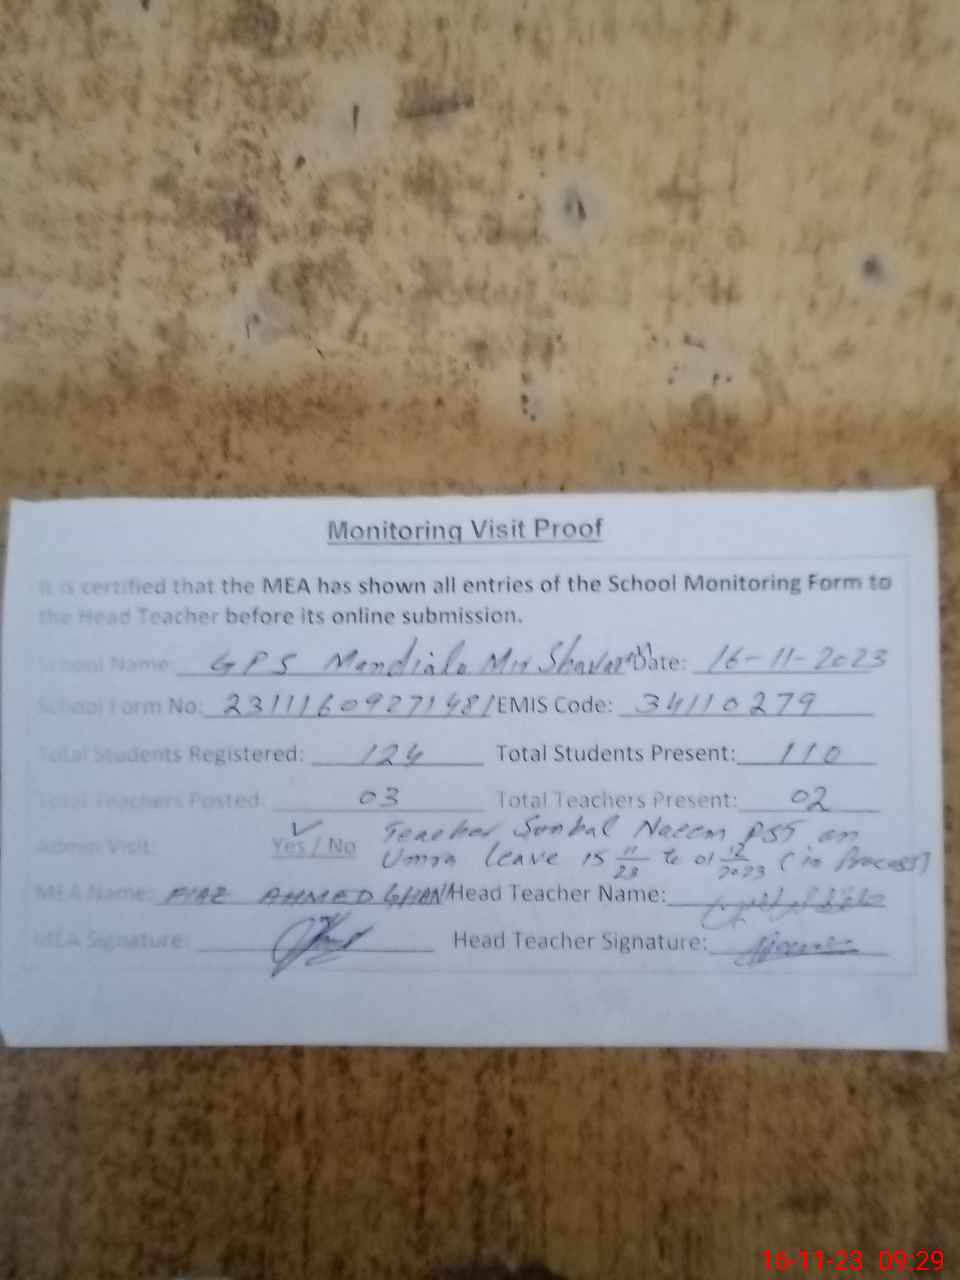 Monitoring Visit Proof
It is certified that the MEA has shown all entries of the School Monitoring Form to
the Head Teacher before its online submission.
School Name: GPS Mandiala Mir Date: 16-11-2023
School Form No: EMIS Code: 34110279
Total Students Registered: 124 Total Students Present: 110
Total Teachers Posted: 03 Total Teachers Present: 02
Admin Visit: Yes / No ✓ Teacher Sunbal Naeem PST on
Umra leave 15 11/23 to 01 12/2023 (in Process)
MEA Name: FIAZ AHMED GHANI Head Teacher Name:
MEA Signature: Head Teacher Signature:
16-11-23 09:29